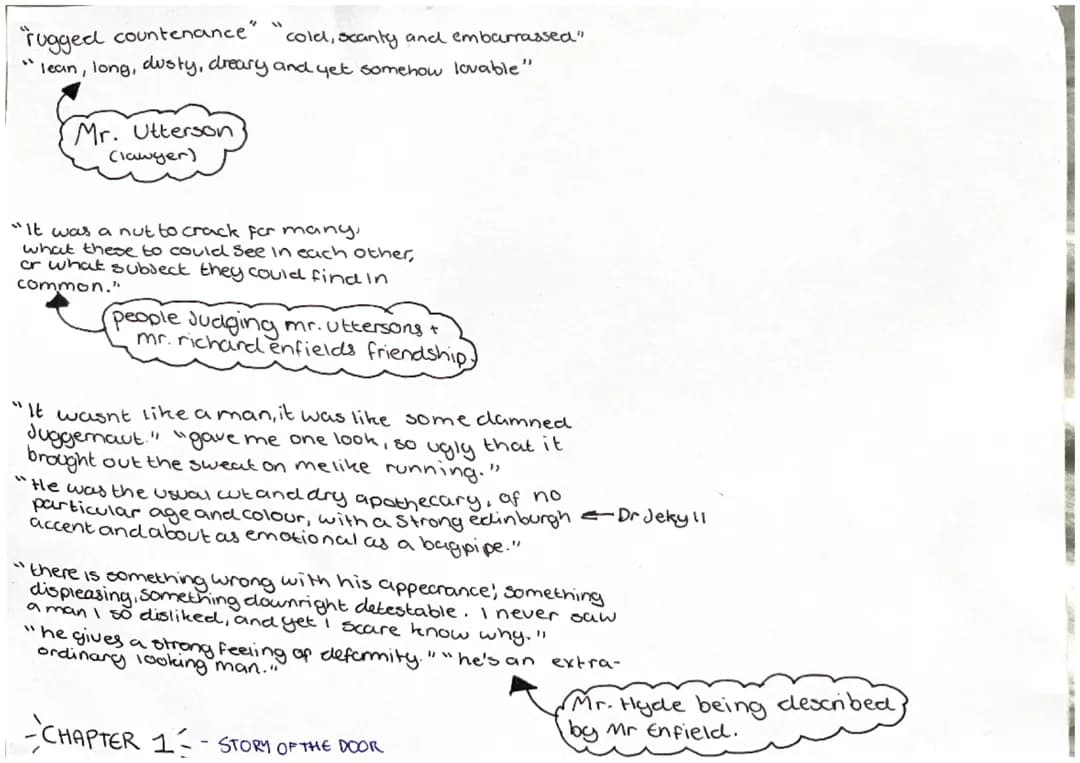 "rugged countenance" "cold, scanty and embarrassed"
"lean, long, dusty, dreary and yet somehow lovable"
Mr. Utterson
(lawyer)
"It was a nut to crack for many,
what these to could see in each other,
or what subject they could find in
common."
people Judging mr. uttersons +
mr. richard enfields friendship.
"It wasnt like a man, it was like some damned
Juggernaut." "gave me one look, so ugly that it
brought out the sweat on me like running."
"He was the usual cut and dry apothecary, of no
particular age and colour, with a strong edinburgh ← Dr Jekyll
accent and about as emotional as a bagpipe."
"there is something wrong with his appearance; something
displeasing, something downright detestable. I never saw
a man I so disliked, and yet I scare know why."
"he gives a strong feeling of deformity." "he's an extra-
ordinary looking man."
Mr. Hyde being described
by Mr Enfield.
-CHAPTER 1- - STORY OF THE DOOR